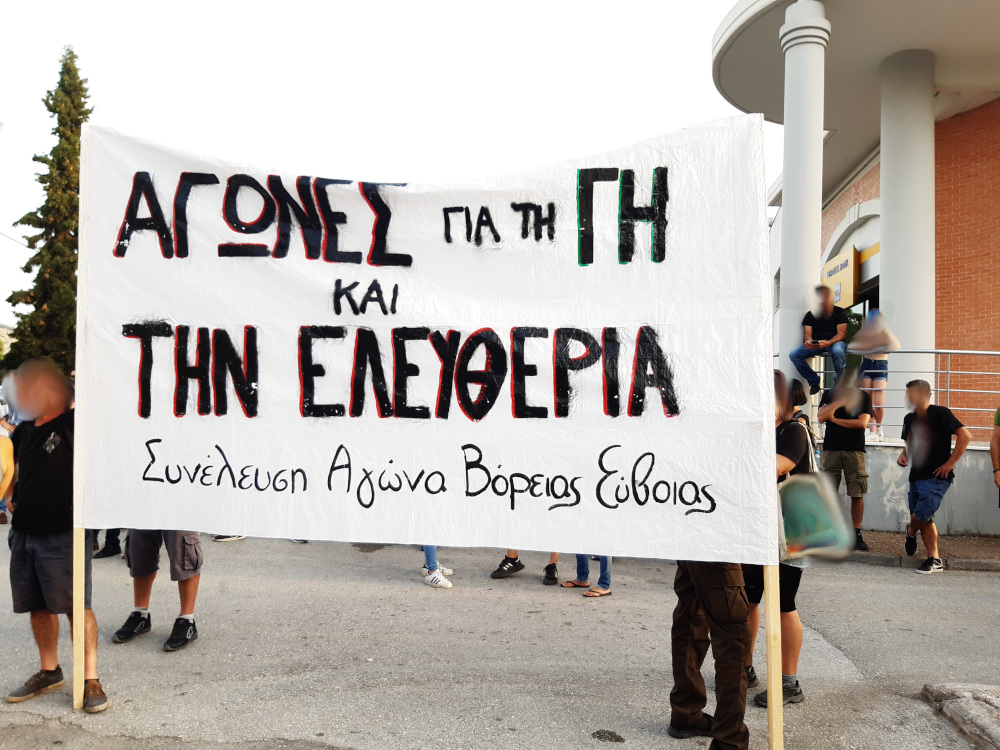 ΑΓΩΝΕΣ ΓΙΑ ΤΗ ΓΗ
ΚΑΙ
ΤΗΝ ΕΛΕΥΘΕΡΙΑ
Συνέλευση Αγώνα Βόρειας Εύβοιας